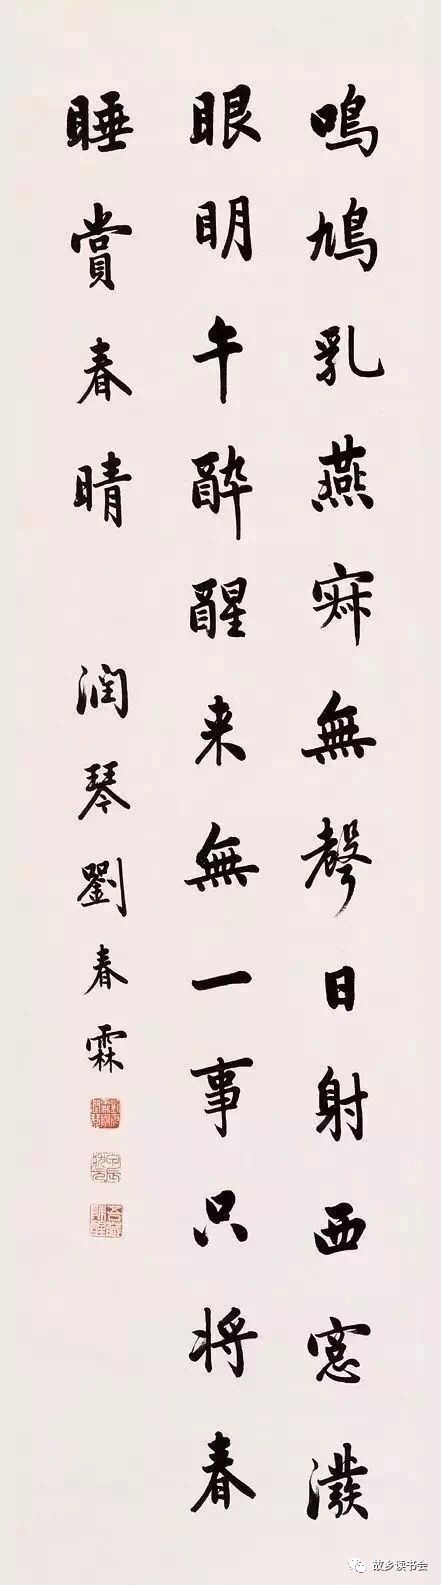 鳴鳩乳燕寂無聲日射西窓潑
眼明午醉醒来無一事只将春
睡賞春晴
润琴劉春霖
故乡读书会